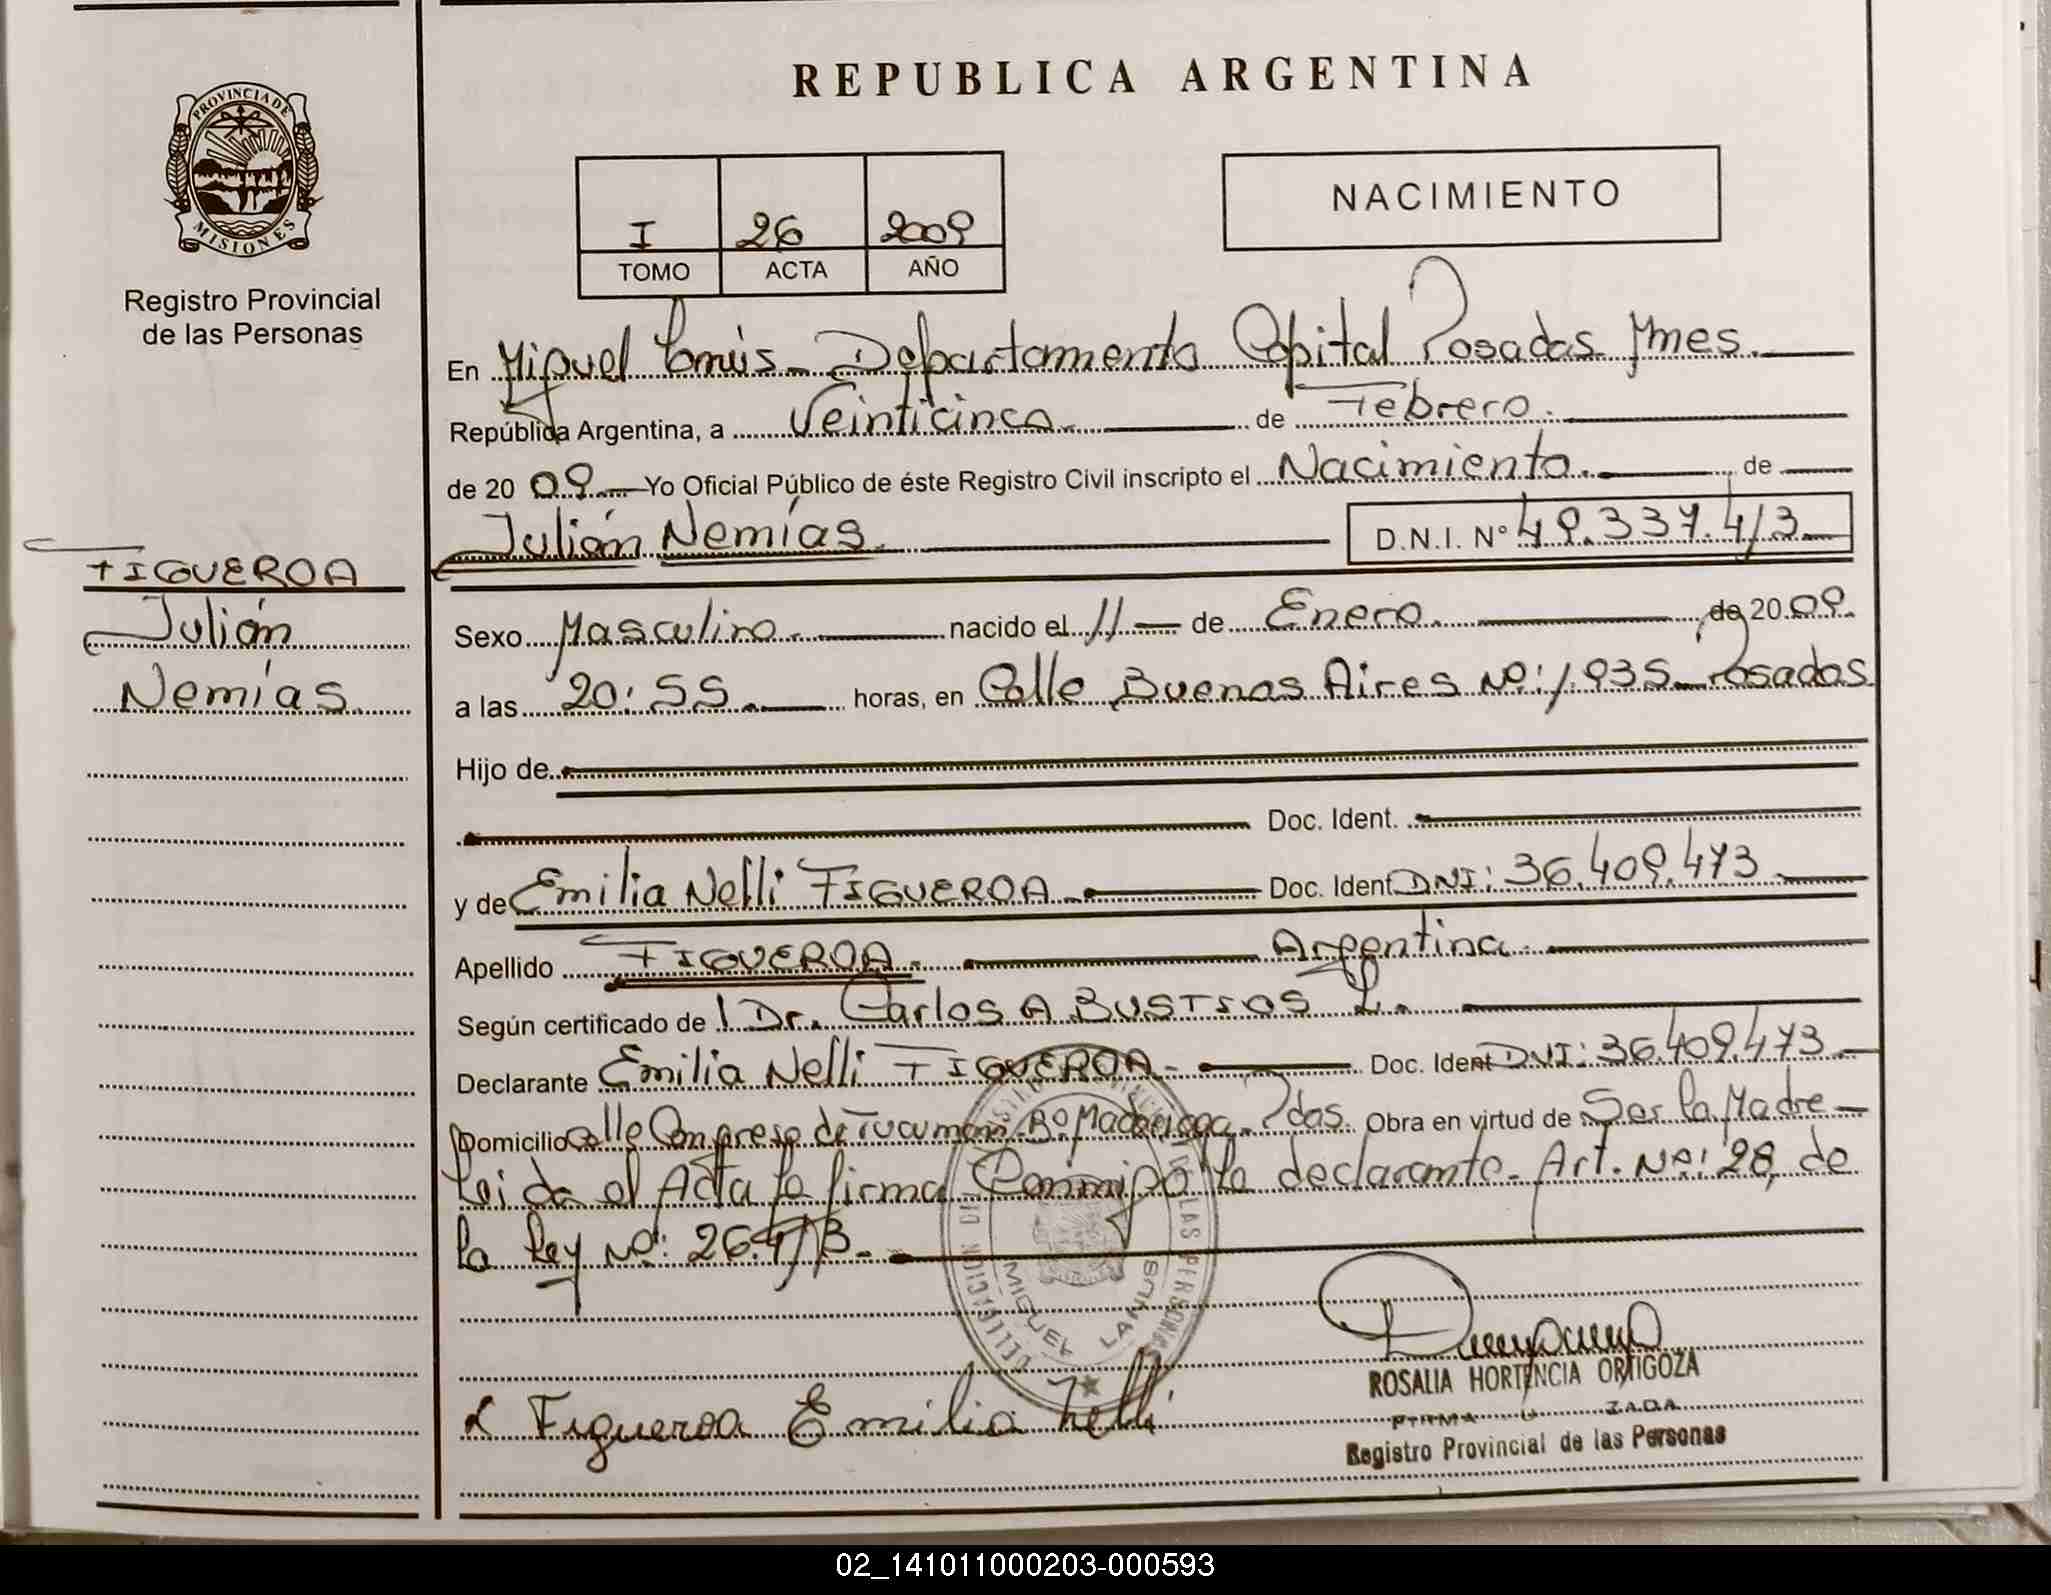 REPUBLICA ARGENTINA
PROVINCIA DE
MISIONES
Registro Provincial
de las Personas
I 26 2009
TOMO ACTA AÑO
NACIMIENTO
En Miguel Lanús - Departamento Capital Posadas Mnes.
República Argentina, a Veinticinco de Febrero.
de 20 09 Yo Oficial Público de éste Registro Civil inscripto el Nacimiento. de
Julián Nemías. D.N.I. Nº 49.337.413
FIGUEROA
Julián
Nemías.
Sexo Masculino nacido el 11 de Enero de 20 09.
a las 20:55 horas, en Calle Buenas Aires Nº: 1.935 Posadas
Hijo de
Doc. Ident.
y de Emilia Nelli FIGUEROA Doc. Ident DNI: 36.409.473
Apellido FIGUEROA. Argentina.
Según certificado de Dr. Carlos A BUSTTOS L.
Declarante Emilia Nelli FIGUEROA - Doc. Ident DNI: 36.409.473
Domicilio Calle Congreso de Tucumán Bº Madariaga. Pdas. Obra en virtud de Ser la Madre
Leida el Acta la firma Conmigo la declarante. Art. Nº: 28, de
la Ley Nº: 26.413.
DELEGACION
LAS PERSONAS
MIGUEL LANUS
ROSALIA HORTENCIA ORTIGOZA
Figueroa Emilia Nelli
Registro Provincial de las Personas
02_141011000203-000593